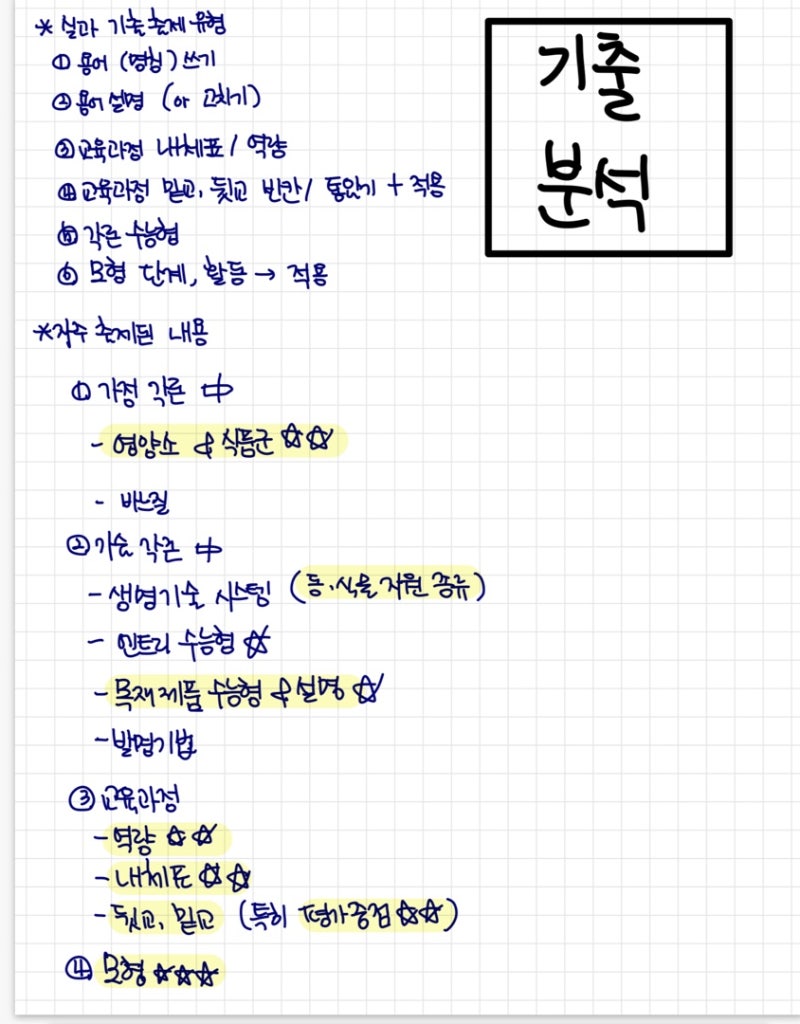 * 실과 기출 출제 유형
① 용어 (명칭) 쓰기
② 용어 설명 (or 고치기)
③ 교육과정 내체표 / 역량
④ 교육과정 밑교, 뒷교 빈칸 / 통암기 + 적용
⑤ 각론 수능형
⑥ 모형 단계, 활동 → 적용
* 자주 출제된 내용
① 가정 각론 中
- 영양소 & 식품군 ☆☆
- 바느질
② 기술 각론 中
- 생명기술 시스템 (동·식물 자원 종류)
- 엔트리 수능형 ☆
- 목재 제품 수능형 & 설명 ☆
- 발명기법
③ 교육과정
- 역량 ☆☆
- 내체표 ☆☆
- 뒷교, 밑교 (특히 평가중점 ☆☆)
④ 모형 ☆☆☆
기출
분석